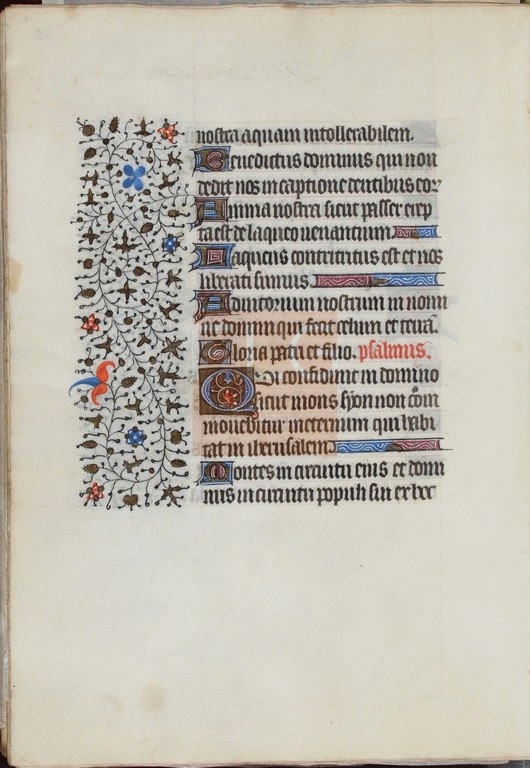 nostra aquam intollerabilem.
Benedictus dominus qui non
dedit nos in captione dentibus eor
Anima nostra sicut passer erep
ta est de laqueo uenantium
Laqueus contritus est et nos
liberati sumus
Adiutorium nostrum in nomi
ne domini qui fecit celum et terra.
Gloria patri et filio. psalmus.
Qui confidunt in domino
sicut mons syon non com
mouebitur in eternum qui habi
tat in iherusalem
Montes in circuitu eius et domi
nus in circuitu populi sui ex hoc